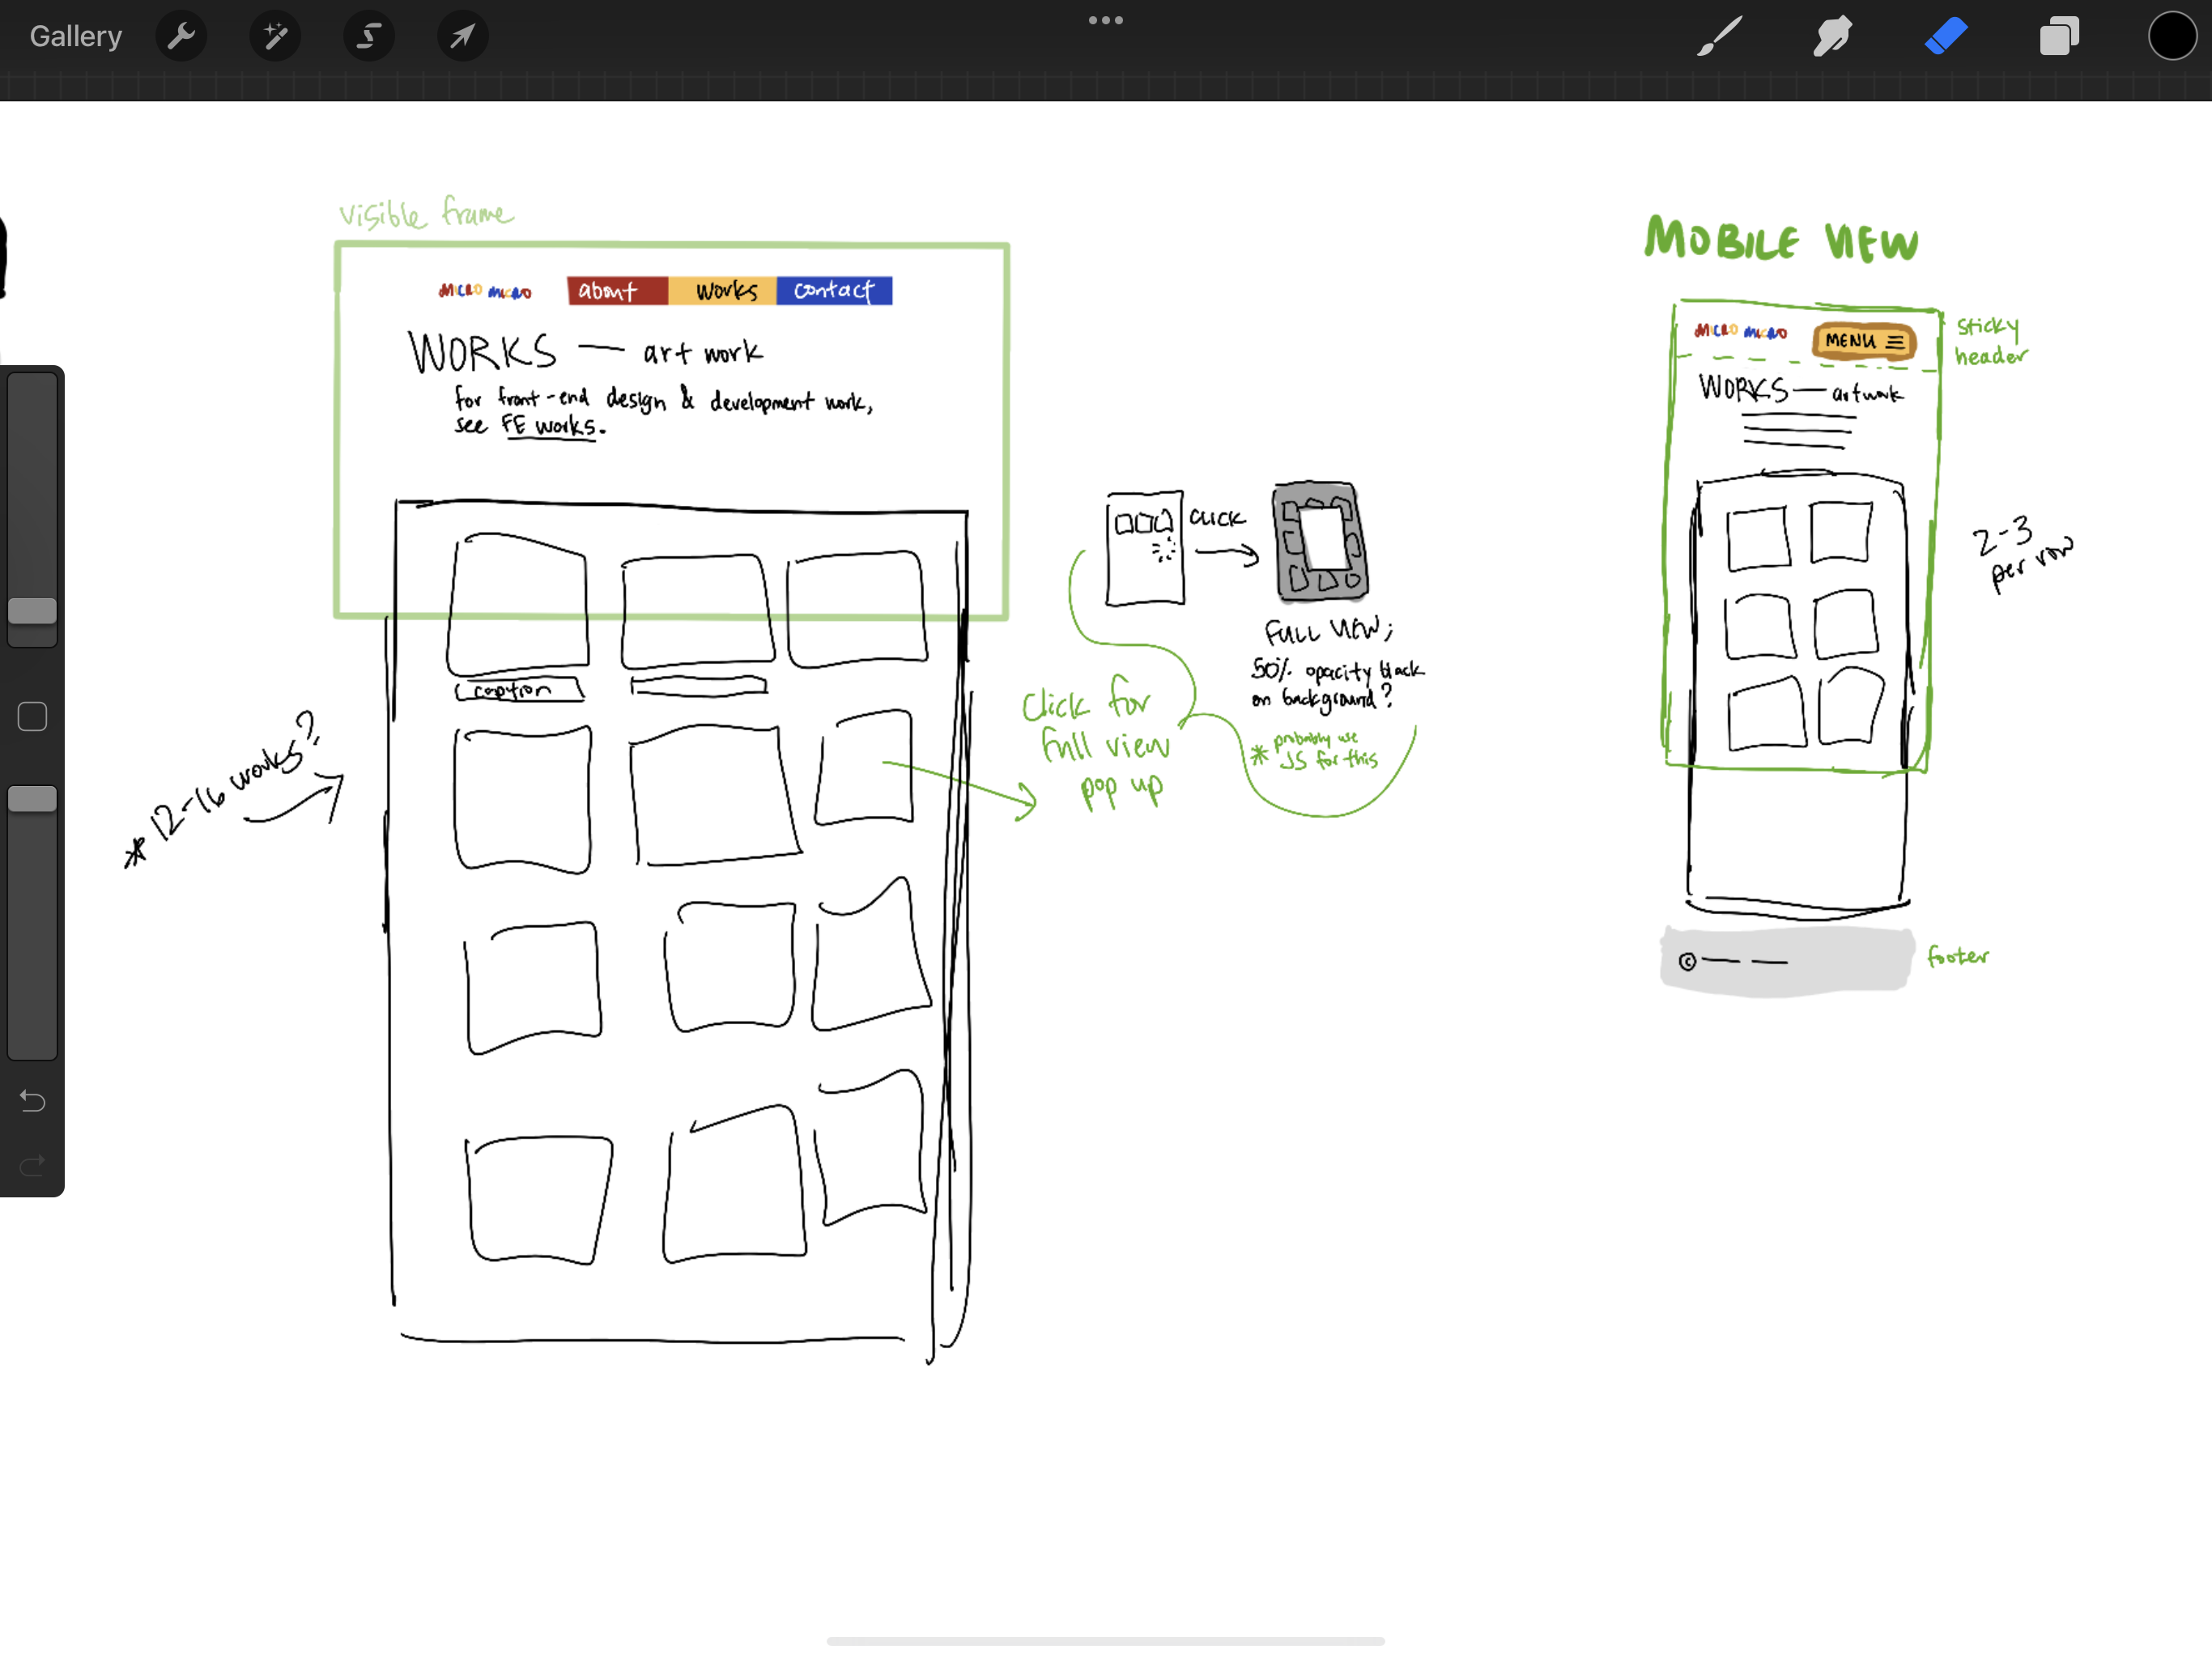 Gallery
visible frame
MICRO MICRO
about
works
contact
WORKS — art work
for front-end design & development work,
see FE works.
caption
* 12-16 works?
CLICK
FULL VIEW;
50% opacity black
on background?
* probably use
JS for this
Click for
full view
pop up
MOBILE VIEW
MICRO MICRO
MENU
sticky
header
WORKS — artwork
2-3
per row
©
footer